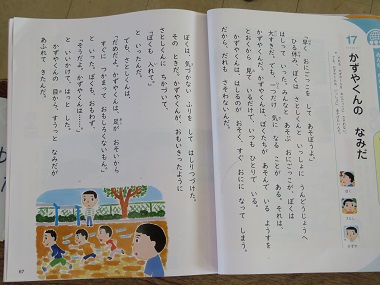 17
かずやくんの なみだ
「ねえ、おにごっこを して あそぼうよ。」
ひる休み、ぼくは さとしくんと いっしょに うんどうじょうへ
はしって いった。みんなと あそぶ おにごっこが、ぼくは
大すきだ。でも、一つだけ 気に なる ことが ある。それは、
かずやくんだ。かずやくんは ぼくたちが あそんで いる ようすを
とおくから 見て いるだけで、いつも ひとりで いる。
かずやくんは、はしるのが おそく、すぐ おにに なって しまう。
だから、だれも さそわないんだ。
ぼくは、気づかない ふりを して はしりつづけた。
その ときだ。かずやくんが、おもいきったように
さとしくんに ちかづいて、
「ぼくも 入れて。」
と いったんだ。
でも、さとしくんは、
「だめだよ。かずやくんは、足が おそいから
すぐに つかまって おもしろくないもん。」
と いった。ぼくも、おもわず、
「そうだよ。かずやくんは……。」
と いいかけて、はっと した。
かずやくんの 目から、すうっと なみだが
あふれて きたんだ。
ぼく
さとし
かずや
67